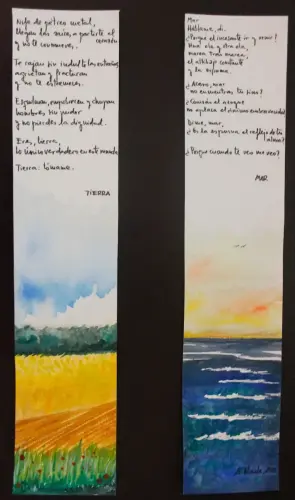 Hija de pétreo metal,
llegan las rejas a partirte el
corazón
y no te conmueves.
Te cajan sin indulto las entrañas,
agrietan y fracturan
y no te estremeces.
Esquilman, empobrecen y chupan
hombres sin pudor
y no pierdes la dignidad.
Eres, tierra,
lo único verdadero en este mundo.
Tierra: tómame.
TIERRA
Mar
Háblame, di.
¿Por qué el incesante ir y venir?
Una ola y otra ola,
marea tras marea,
el oleaje constante
y la espuma.
¿Acaso, mar
no encuentras tu sino?
¿Cansada al ataque
no aplaca el ánimo
Dime, mar,
¿Es la espuma el reflejo de tu
alma?
¿Por qué cuando te veo me veo?
MAR